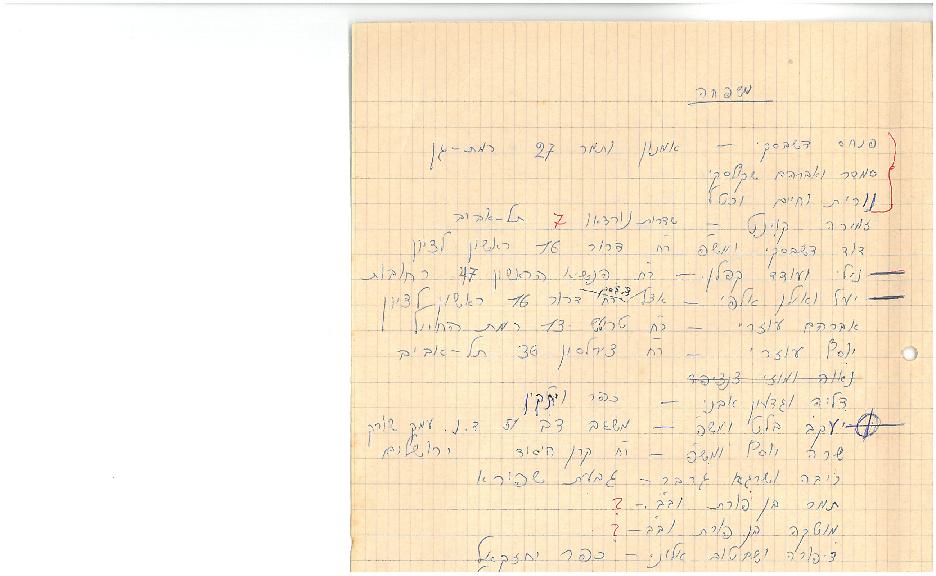 משפחה
פנחס דשבסקי - אמנון ותמר 27 רמת-גן
סמדר ואברהם שקולסקי
נורית וחיים
זמירה קוינט - שדרות נורדאו 7 תל-אביב
דוד דשבסקי ומשפ' רח' דרור 16 ראשון לציון
נילי ועודד קפלן - רח' הנשיא הראשון 47 רחובות
יעל ואילן אלפי - אצל דרור 16 ראשון לציון
אברהם עוזרי - רח' 13 רמת החייל
יוסף עוזרי - רח' צירלסון 36 תל-אביב
נאוה ומוזי
דליה וגדעון אבני - כפר ויתקין
יעקב בלט ומשפ' - משאב דב 57 ד.נ. עמק שורק
שרה יוסף ומשפ' - רח' קרן היסוד ירושלים
ריבה ושרגא גרבר - גבעת שפירא
תמר בן פורת וב"ב - ?
מוטקה בן פורת וב"ב - ?
ציפורה ושבטוב אלוני - כפר יחזקאל